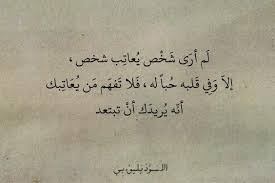 لَم أرَى شَخْص يُعاتِب شخص ،
إلاَ وَفِي قلبه حُباً له ، فَلا تَفهَم مَن يُعَاتِبك
أنّه يُريدَك أنْ تبتعد